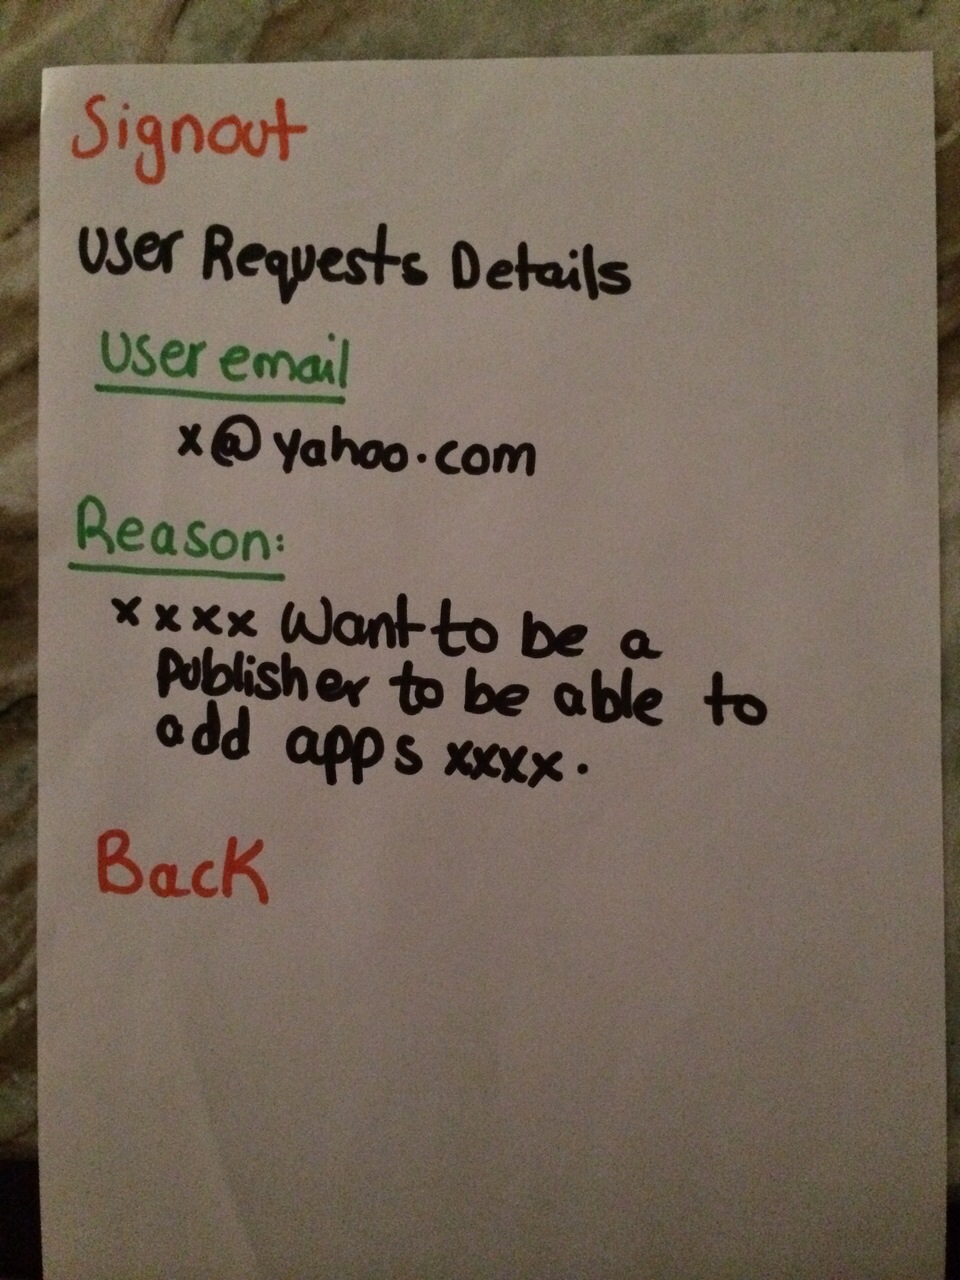 Signout
User Requests Details
User email
x@yahoo.com
Reason:
xxxx Want to be a
publisher to be able to
add apps xxxx.
Back